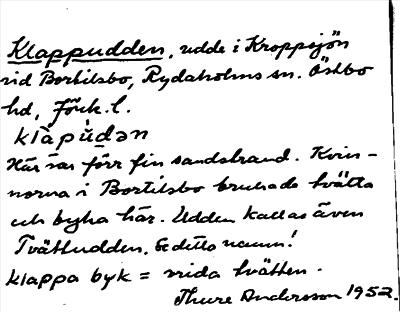 Klappudden, udde i Kroppsjön
vid Bortilsbo, Rydaholms sn. Östbo
hd, Jönk. l.
klàpùdən
Här var förr fin sandstrand. Kvin-
norna i Bortilsbo brukade tvätta
och byka här. Udden kallas även
Tvättudden. Se detta namn!
klappa byk = vrida tvätten.
Thure Andersson 1952.